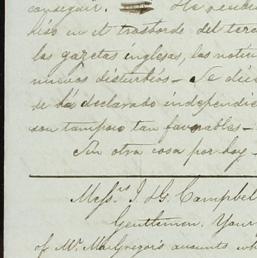 conseguir.
hizo en el trasbordo del
las gazetas inglesas, las
nuevos disturbios - Se
de declarado
son tampoco tan favorables -
Sin otra cosa por hoy -
Mess.rs J. & G. Campbel
Gentlemen. Your
of Mr. MacGregor's accounts